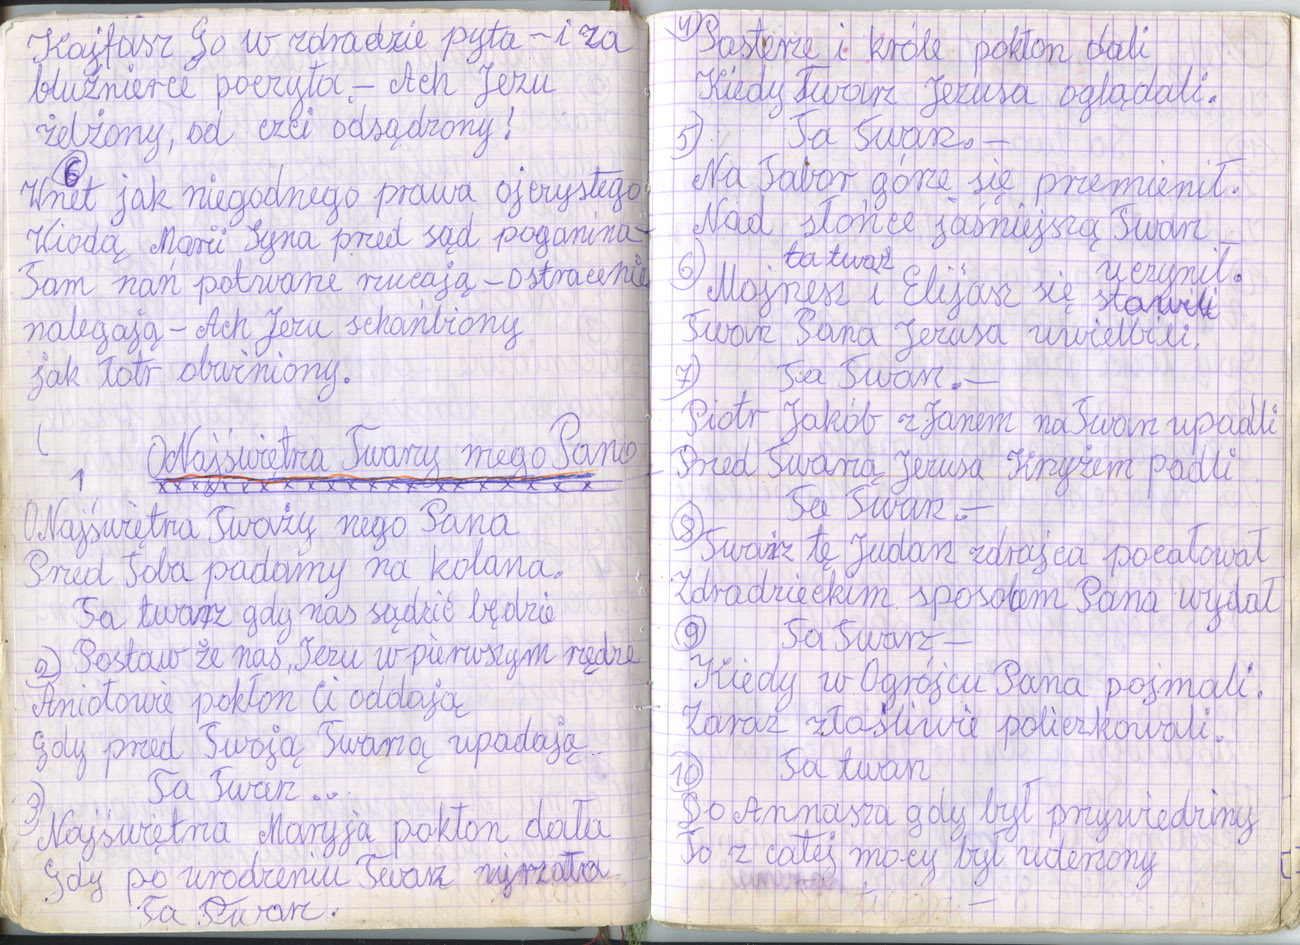 Kajfasz Go w zdradzie pyta – i za
bluźnierce poczyta – Ach Jezu
zelżony, od czci odsądzony!
6
Wnet jak niegodnego prawa ojczystego
Wiodą Marii Syna przed sąd poganina –
Tam nań potwarze rzucają – o stracenie
nalegają – Ach Jezu schańbiony
jak łotr obwiniony.
O Najświętrza Twarzy mego Pana
1
O Najświętrza Tważy mego Pana
Przed Tobą padamy na kolana.
Ta twarz gdy nas sądzić będzie
2) Postaw że nas, Jezu w pierwszym rzędzie
Aniołowie pokłon Ci oddają
gdy przed Twoją Twarzą upadają
Ta Twarz...
3)
Najświętrza Maryja pokłon dała
Gdy po urodzeniu Twarz ujrzała
Ta Twarz.
4) Pasterze i króle pokłon dali
Kiedy Twarz Jezusa oglądali.
5) Ta Twarz. –
Na Tabor górze się przemienił.
Nad słońce jaśniejszą Twarz
uczynił.
6) ta tważ
Mojrzesz i Elijasz się stawili
Twarz Pana Jezusa uwielbili.
7) Ta Twarz. –
Piotr Jakób z Janem na Twarz upadli
Przed Twarzą Jezusa Krzyżem padli
Ta Twarz. –
8)
Twarz tę Judasz zdrajca pocałował
Zdradzieckim sposobem Pana wydał
9 Ta Twarz –
Kiedy w Ogrójcu Pana pojmali.
Zaraz złośliwie policzkowali.
10 Ta twarz
Do Annasza gdy był przywiedziny
To z całej mocy był uderzony